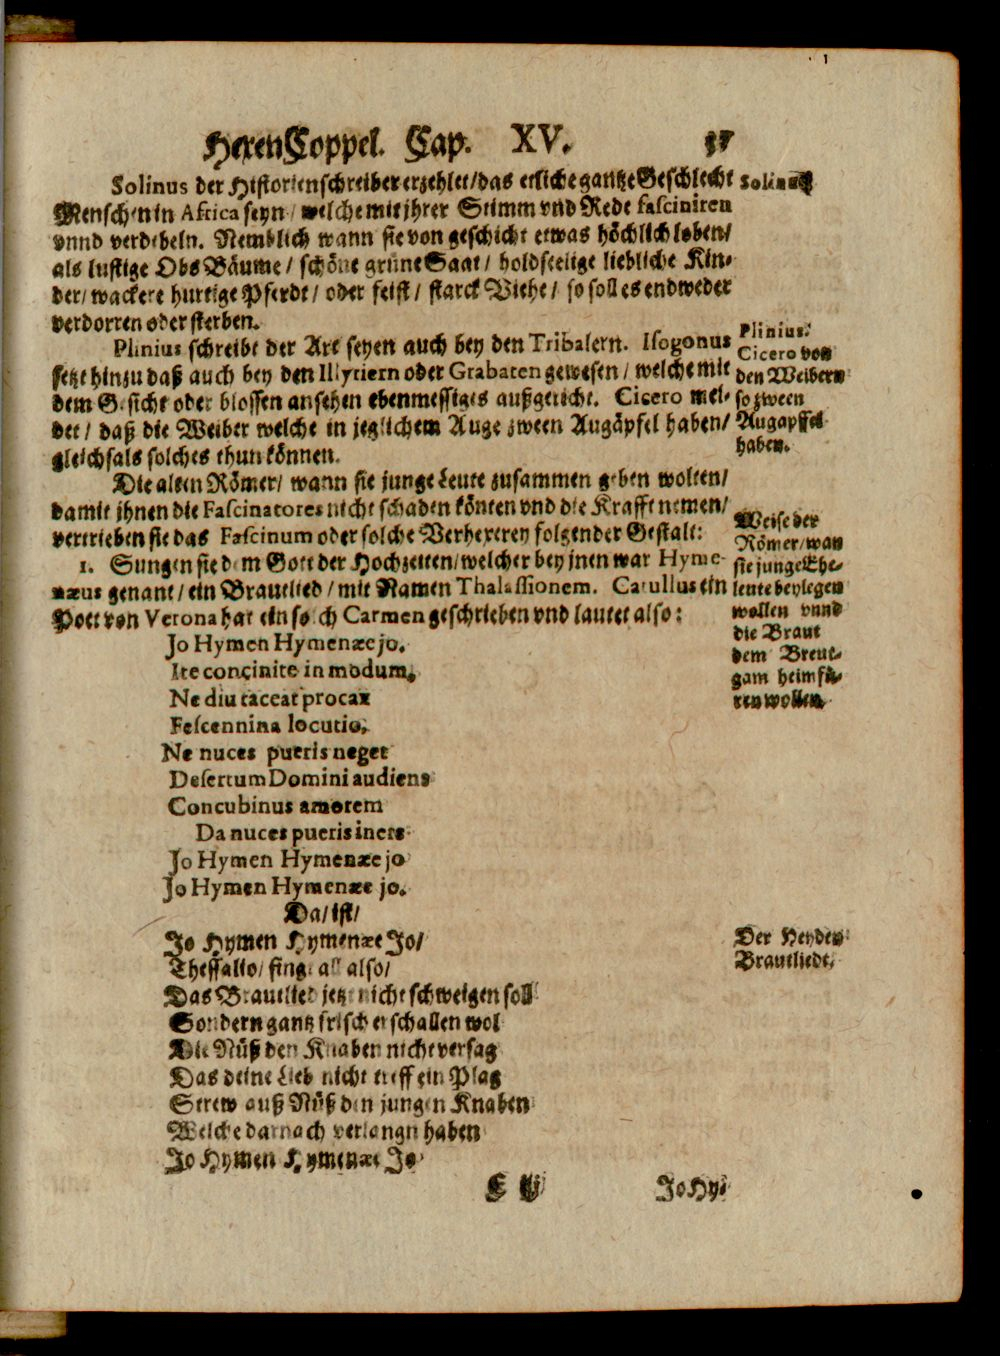 HexenCoppel. Cap. XV. 37
Solinus der Historienschreiber erzehlet/das etliche gantze Geschlecht
Solinus
Menschen in Africa seyn/welche mit jhrer Stimm vnd Rede fasciniren
vnnd verdebeln. Nemblich wann sie von geschicht etwas höchlich loben/
als lustige Obs Bäume/ schöne grüne Saat/ holdseelige liebliche Kin-
der/wackere hurtige Pferdt/ oder feist/ starck Viehe/ so soll es endweder
verdorren oder sterben.
Plinius schreibt der Art seyen auch bey den Tribalern. Isogonus
setzt hinzu daß auch bey den Illyriern oder Grabaten gewesen/welche mit
dem Gesicht oder blossen ansehen ebenmessiges außgericht. Cicero mel-
det/ daß die Weiber welche in jeglichem Auge zween Augäpfel haben/
gleichfals solches thun können.
Plinius.
Cicero von
den Weibern
so zween
Augapffel
haben.
Die alten Römer/ wann sie junge Leute zusammen geben wolten/
damit ihnen die Fascinatores nicht schaden könten vnd die Krafft nemen/
vertrieben sie das Fascinum oder solche Verhexerey folgender Gestalt:
1. Sungen sie dem Gott der Hochzeiten/welcher bey jnen war Hyme-
næus genant/ein Brautlied/mit Namen Thalassionem. Catullus ein
Poet von Verona hat ein solch Carmen geschrieben vnd lautet also:
Weise der
Römer/wan
sie junge Ehe-
leute beylegen
wollen vnnd
die Braut
dem Breut-
gam heimfü-
ren wollen.
Jo Hymen Hymenæe jo.
Ite concinite in modum.
Ne diu taceat procax
Fescennina locutio.
Ne nuces pueris neget
Desertum Domini audiens
Concubinus amorem
Da nuces pueris iners
Jo Hymen Hymenæe jo
Jo Hymen Hymenæe jo.
Da/ ist/
Jo Hymen Hymenæe Jo/
Thessalio/ singt all also/
Das Brautlied jetzt nicht schweigen soll
Sondern gantz frisch erschallen wol
Die Nüß den Knaben nicht versag
Das deine Lieb nicht treff ein Plag
Strew auß Nüß den jungen Knaben
Welche darnach verlangn haben
Jo Hymen Hymenæe Jo
Der Heyden
Brautliedt.
Jo Hy-